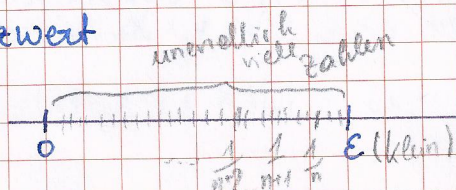 zwert
unendlich
viele Zahlen
0 ε (klein)
... 1/n+2 1/n+1 1/n